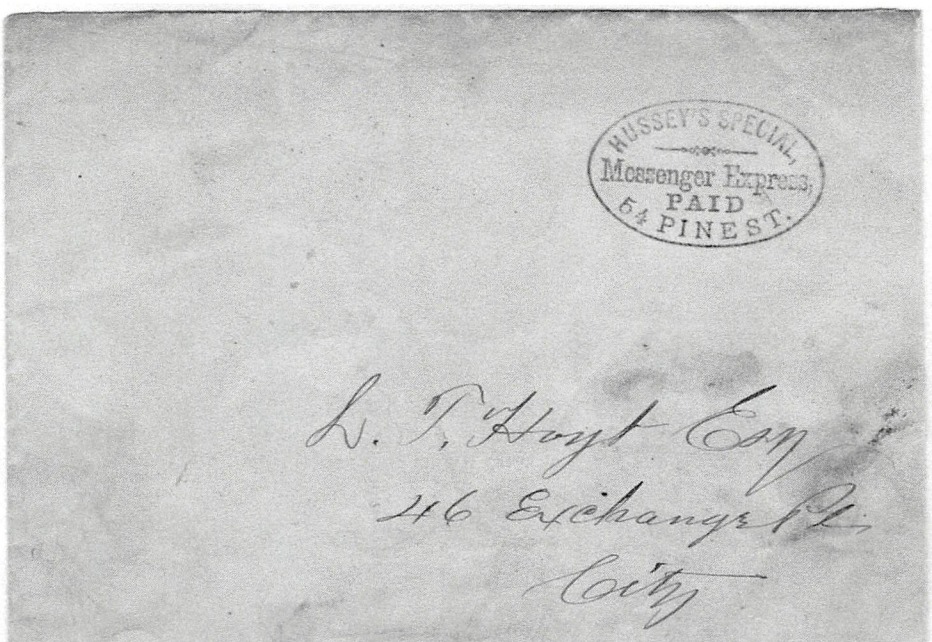 HUSSEY'S SPECIAL,
Messenger Express,
PAID
54 PINE ST.
L. T. Hoyt Esq
46 Exchange Pl.
City